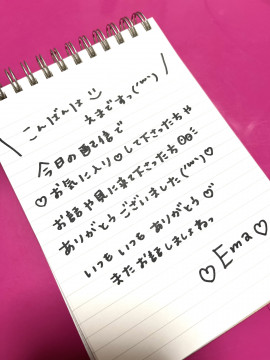 こんばんは☺
えまですっ(˙꒳˙)
今日の配信で
♡お気に入り♡して下さった方や
お話や見に来て下さった方
ありがとうございました(˙꒳˙)♡
いつもいつもありがとう♡
またお話しましょねっ
♡Ema♡